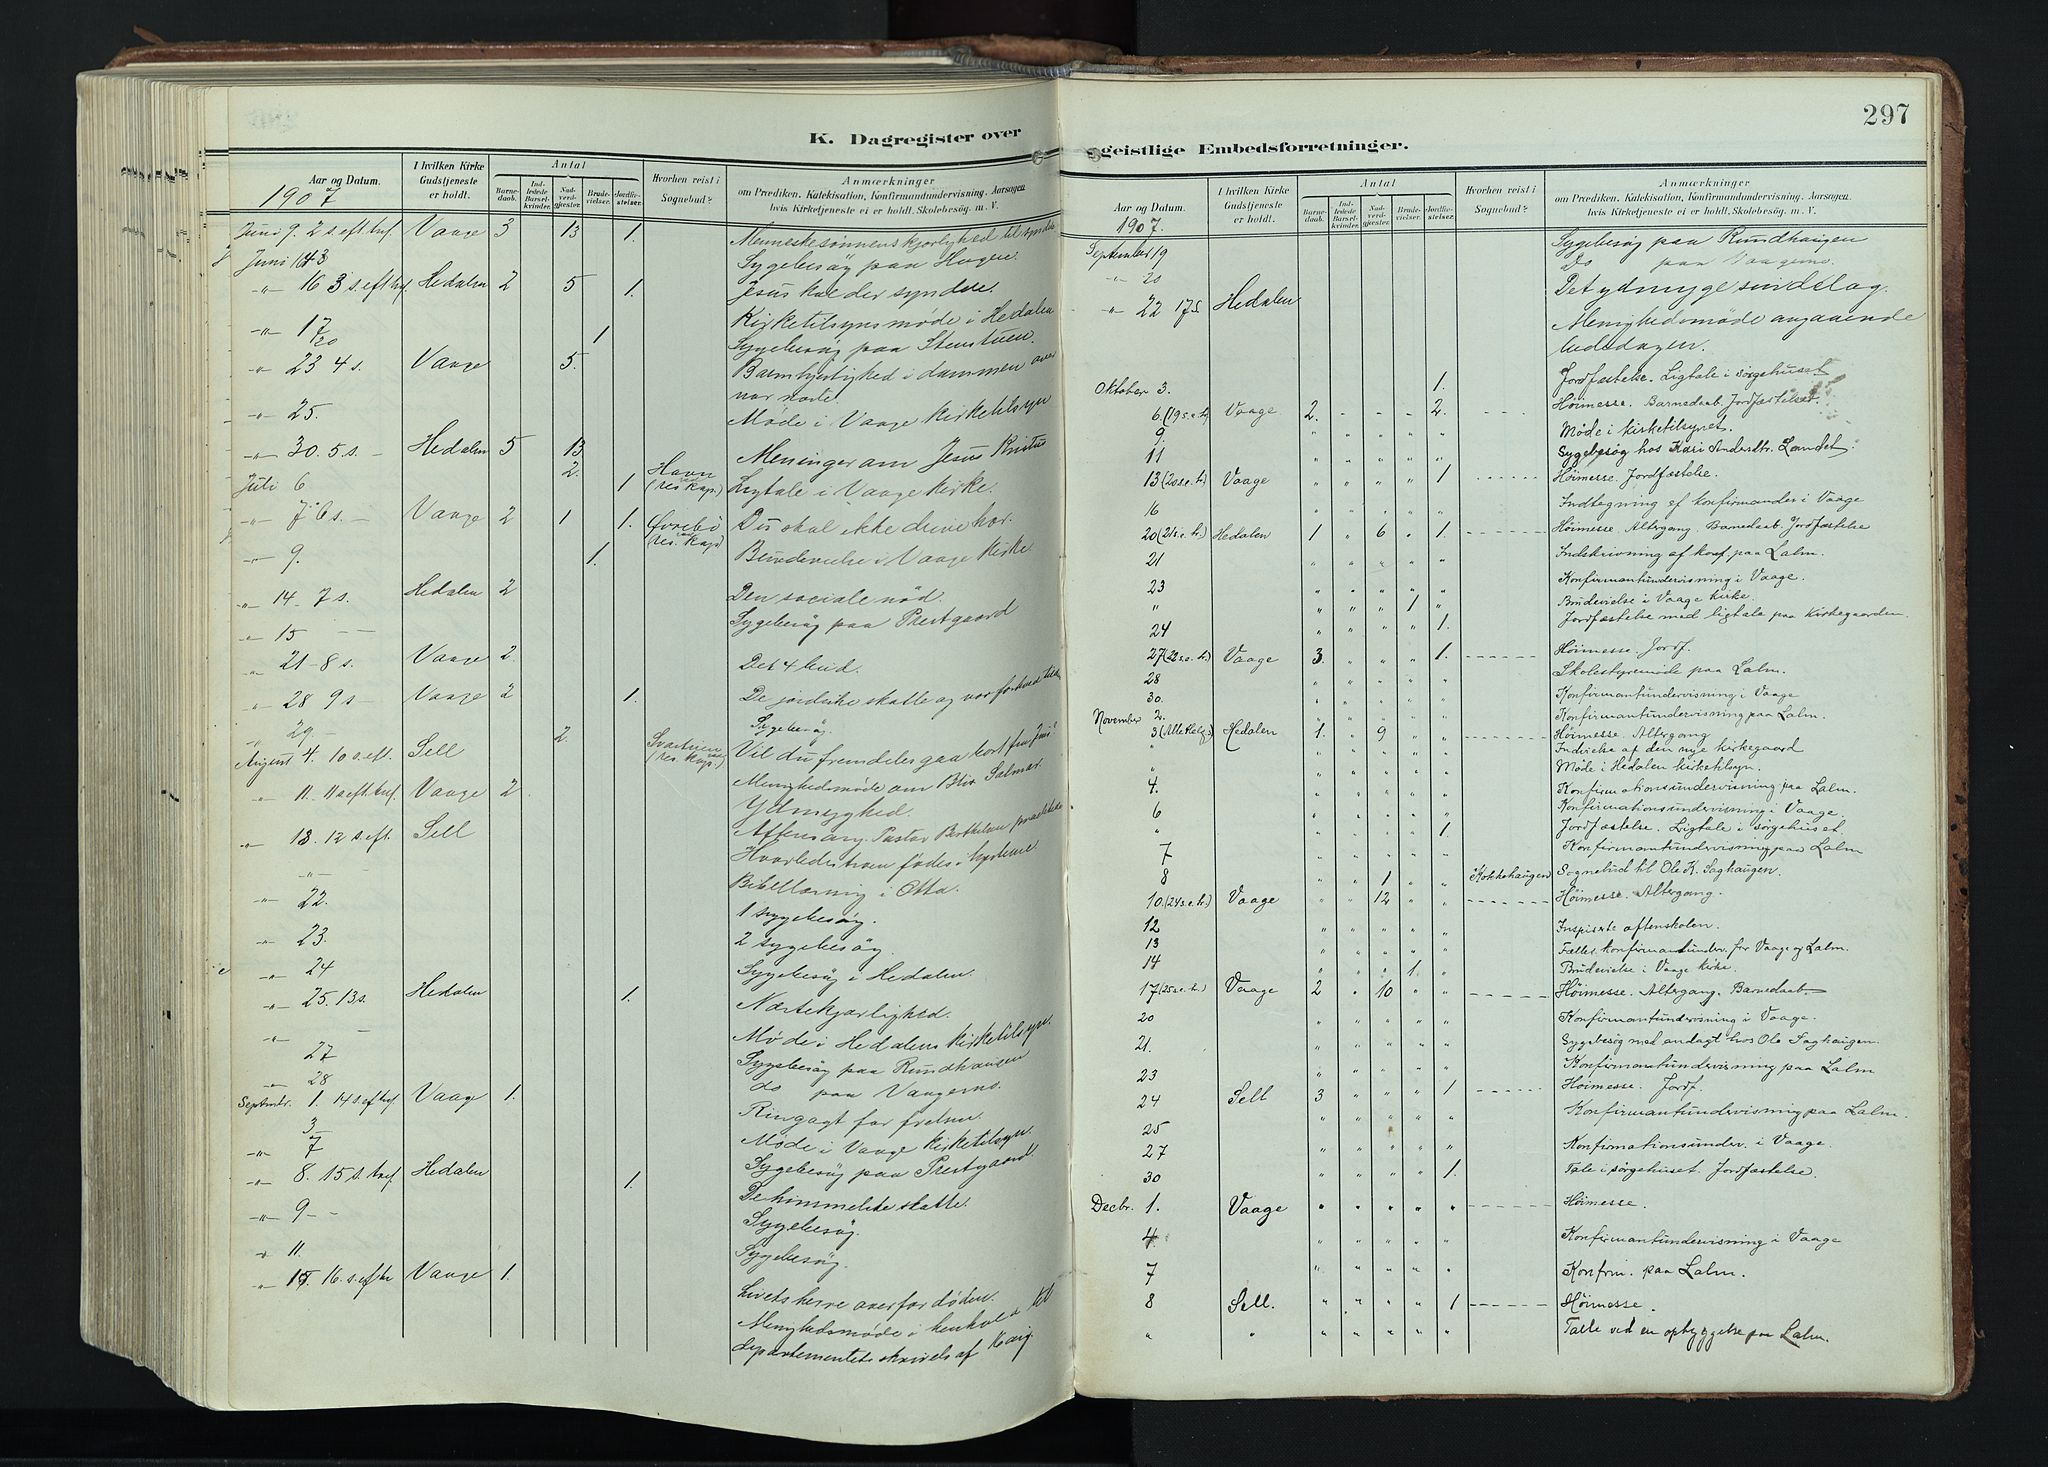 K. Dagregister over
Aar og Datum.
1907
I hvilken Kirke Gudstjeneste er holdt.
Antal
Barnedaab.
Indledede Barselkvinder.
Nadverdgjester.
Brudevielser.
Jordfæstelser.
Hvorhen reist i Sognebud?
Anmærkninger
om Prædiken. Katekisation, Konfirmandundervisning. Aarsagen
hvis Kirketjeneste ei er holdt. Skolebesøg. m. V.
Juni 9. 2 s. eft. tref. Vaage 3 13 1. Menneskesønnens kjærlighed til
Juni Sygebesøg paa Haugen.
" 16 3 s. eft. tref. Hedalen 2 5 1. Jesus kalder syndere.
" 17 Kirketilsynsmøde i Hedalen
20 1 Sygebesøg paa Stenstuen.
" 23 4 s. Vaage 5. Barmhjertighed i dommen over
vor næste.
" 25. Møde i Vaage kirketilsyn
" 30. 5 s. – Hedalen 5 13 Meninger om Jesus Kristus
Juli 6 2. 1 Havn (res. kap.) Ligtale i Vaage kirke.
" 7 6 s. – Vaage 2 1 1. Øvrebö (res. kap) Du skal ikke drive hor.
" 9. 1. Brudevielse i Vaage Kirke
" 14. 7 s. Hedalen 2 Den sociale nød.
" 15 Sygebesøg paa Prestgaard
" 21 8 s. Vaage 2. Det 4 bud.
" 28 9 s Vaage 2 1. De jordiske skatte og vor forhold
" 29 Sygebesøg.
August 4. 10 s. eft. Sell 2. (res. kap.) Vil du fremdeles gaa bort
Menighedsmøde om Blix Salmer
" 11. 11 s. eft. tref. Vaage 2. Ydmyghed.
" 12 s. eft. Sell Aftensang. Pastor Berthelsen
Hvorledes troen fødes i hjerterne
Bibellæsning i Otta.
" 22. 1 sygebesøg.
" 23. 2 sygebesøg
" 24 Sygebesøg i Hedalen.
" 25. 13 s. Hedalen 1. Næstekjærlighed.
Møde i Hedalens Kirketilsyn.
" 27 Sygebesøg paa Rundhaugen
" 28 do paa
Septmbr. 1. 14 s. eft. tref. Vaage 1.
3 Møde i Vaage Kirketilsyn.
" 7 Sygebesøg paa Prestgaard
" 8. 15 s. tref Hedalen 1. De himmelske skatte.
" 9 Sygebesøg.
" 11. Sygebesøg.
" 15 16. s. eftr Vaage 1. Livets herre overfor døden.
Menighedsmøde i henhold til
departementets skrivels af
297
geistlige Embedsforretninger.
Aar og Datum.
1907.
I hvilken Kirke Gudstjeneste er holdt.
Antal
Barnedaab.
Indledede Barselkvinder.
Nadverdgjester.
Brudevielser.
Jordfæstelser.
Hvorhen reist i Sognebud?
Anmærkninger
om Prædiken. Katekisation, Konfirmandundervisning. Aarsagen
hvis Kirketjeneste ei er holdt. Skolebesøg. m. V.
September 19 Sygebesøg paa Rundhaugen
" 20 Do paa Vaagemo.
" 22 17 s Hedalen Det ydmyge sindslag.
Menighedsmøde angaaende
budsdagen.
Oktober 3. 1. Jordfæstelse. Ligtale i sørgehuset
6. (19 s. e. tr.) Vaage 2. - - - 2. Høimesse. Barnedaab. Jordfæstelser.
9. " " " " " Møde i kirketilsynet.
11 " " " " " Sygebesøg hos Kari Andersdtr. Landet.
13 (20 s. e. tr.) Vaage " " " " 1 Høimesse. Jordfæstelse.
16 " " " " " Indtegning af konfirmander i Vaage
20 (21 s. e. tr.) Hedalen 1 " 6 " 1. Høimesse. Altergang. Barnedaab. Jordfæstelse
21 " " " " " Indskrivning af konf. paa Lalm.
23 " " " " " Konfirmantundervisning i Vaage.
" " " " 1 " Brudevielse i Vaage kirke.
24 " " " " 1. Jordfæstelse med ligtale paa kirkegaarden.
27 (22 s. e. tr.) Vaage 3. " " " 1. Høimesse. Jordf.
28 " " " " " Skolestyremøde paa Lalm.
30. " " " " " Konfirmantundervisning i Vaage
November 2. " " " " " Konfirmantundervisning paa Lalm.
3 (Alle Helg. s.) Hedalen 1. " 9 " " Høimesse. Altergang
" " " " " " Indvielse af den nye kirkegaard
" " " " " " Møde i Hedalen kirketilsyn.
4. " " " " " Konfirmationsundervisning paa Lalm.
6 " " " " " Konfirmationsundervisning i Vaage.
" " " " " 1 Jordfæstelse. Ligtale i sørgehuset.
7 " " " " " Konfirmantundervisning paa Lalm
8 " " 1 " " Kokkohaugen Sognebud til Ole K. Saghaugen.
10. (24 s. e. tr.) Vaage " " 12 " " Høimesse. Altergang.
12 " " " " " Inspiserte aftenskolen.
13 " " " " " Fælles konfirmantunder. for Vaage og Lalm.
14 " " " 1 " Brudevielse i Vaage kirke.
17 (25 s. e. tr.) Vaage 2 " 10 " " Høimesse. Altergang. Barnedaab.
20 " " " " " Konfirmantundervisning i Vaage.
21. " " " " " Sygebesøg med andagt hos Ole Saghaugen.
23 " " " " " Konfirmantundervisning paa Lalm
24 Sell 3 " " " 1 Høimesse. Jordf.
25 " " " " " Konfirmantundervisning paa Lalm.
27 " " " " " Konfirmationsunder. i Vaage.
30 " " " " 1. Tale i sørgehuset. Jordfæstelse.
Decbr. 1. Vaage " " " " " Høimesse.
4. " " " " " Konfirmantundervisning i Vaage
7 " " " " " Konfirm. paa Lalm.
8 Sell. " " " " 1 Høimesse.
" " " " " " " Talte ved en opbyggelse paa Lalm.